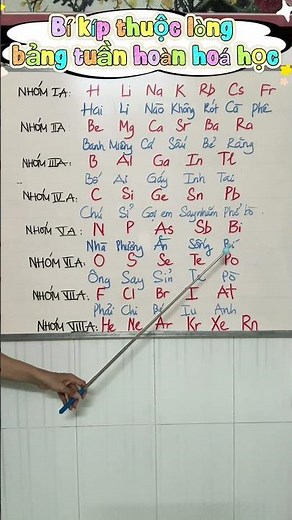 Bí kíp thuộc lòng
bảng tuần hoàn hoá học
NHÓM IA: H Li Na K Rb Cs Fr
Hai Li Nào Không Rót Cà Phê
NHÓM IIA Be Mg Ca Sr Ba Ra
Bánh Miếng Cá Sấu Bẻ Răng
NHÓM IIIA: B Al Ga In Tl
Bố Ai Gáy Inh Tai
NHÓM IVA: C Si Ge Sn Pb
Chú Sỉ Gọi em Say nhằm Phở bò
NHÓM VA: N P As Sb Bi
Nhà Phương Ăn Sống Bí
NHÓM VIA: O S Se Te Po
Ông Say Sỉn Té Pò
NHÓM VIIA: F Cl Br I At
Phải Chi Bé Iu Anh
NHÓM VIIIA: He Ne Ar Kr Xe Rn